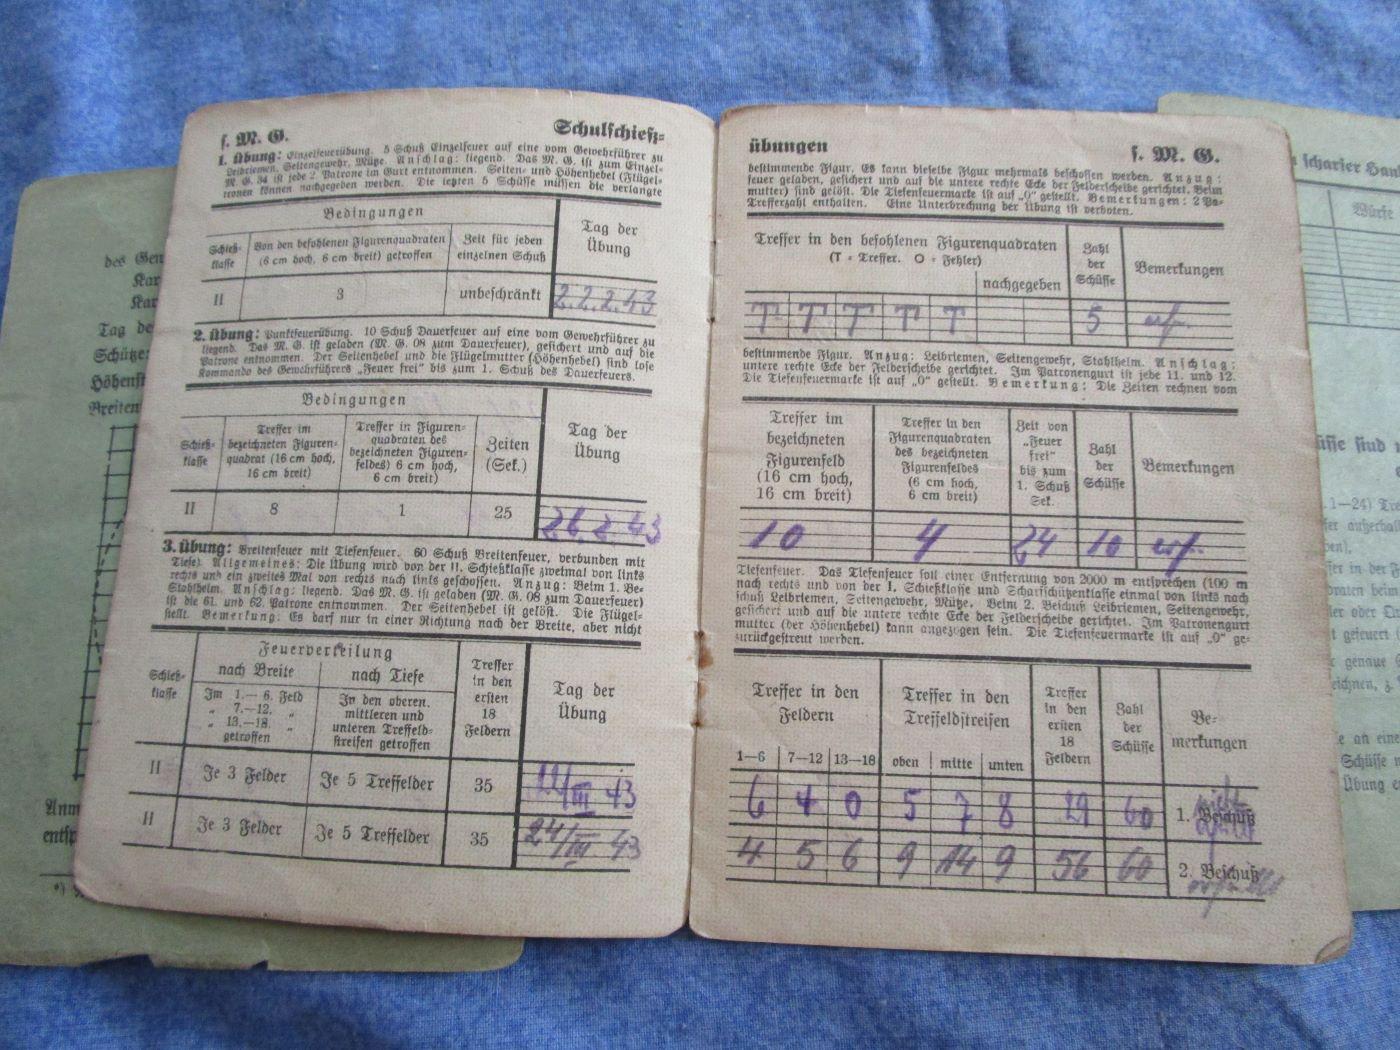 s. M. G.
Schulschieß-
1. Übung: Einzelfeuerübung. 5 Schuß Einzelfeuer auf eine vom Gewehrführer zu
Leibriemen, Seitengewehr, Mütze. Anschlag: liegend. Das M. G. ist zum Einzel-
M. G. 34 ist jede 2. Patrone im Gurt entnommen. Seiten- und Höhenhebel (Flügel-
ronen können nachgegeben werden. Die letzten 5 Schüsse müssen die verlangte
Bedingungen
Tag der Übung
Schieß-klasse
Von den befohlenen Figurenquadraten (6 cm hoch, 6 cm breit) getroffen
Zeit für jeden einzelnen Schuß
II 3 unbeschränkt 2.2.2.43
2. Übung: Punktfeuerübung. 10 Schuß Dauerfeuer auf eine vom Gewehrführer zu
liegend. Das M. G. ist geladen (M. G. 08 zum Dauerfeuer), gesichert und auf die
Patrone entnommen. Der Seitenhebel und die Flügelmutter (Höhenhebel) sind lose
Kommando des Gewehrführers „Feuer frei" bis zum 1. Schuß des Dauerfeuers.
Bedingungen
Tag der Übung
Schieß-klasse
Treffer im bezeichneten Figuren-quadrat (16 cm hoch, 16 cm breit)
Treffer in Figuren-quadraten des bezeichneten Figuren-feldes) 6 cm hoch, 6 cm breit)
Zeiten (Sek.)
II 8 1 25 26.2.43
3. Übung: Breitenfeuer mit Tiefenfeuer. 60 Schuß Breitenfeuer, verbunden mit
Tiefe). Allgemeines: Die Übung wird von der II. Schießklasse zweimal von links
rechts und ein zweites Mal von rechts nach links geschossen. Anzug: Beim 1. Be-
Stahlhelm. Anschlag: liegend. Das M. G. ist geladen (M. G. 08 zum Dauerfeuer)
ist die 61. und 62. Patrone entnommen. Der Seitenhebel ist gelöst. Die Flügel-
stellt. Bemerkung: Es darf nur in einer Richtung nach der Breite, aber nicht
Feuerverteilung
Schieß-klasse
nach Breite
nach Tiefe
Treffer in den ersten 18 Feldern
Tag der Übung
Im 1.— 6. Feld
„ 7.—12. „
„ 13.—18. „
getroffen
In den oberen, mittleren und unteren Treffeld-streifen getroffen
II Je 3 Felder Je 5 Treffelder 35 /III 43
II Je 3 Felder Je 5 Treffelder 35 24/III 43
übungen
s. M. G.
bestimmende Figur. Es kann dieselbe Figur mehrmals beschossen werden. Anzug:
feuer geladen, gesichert und auf die untere rechte Ecke der Felderscheibe gerichtet. Beim
mutter) sind gelöst. Die Tiefenfeuermarke ist auf „0" gestellt. Bemerkungen: 2 Pa-
Trefferzahl enthalten. Eine Unterbrechung der Übung ist verboten.
Treffer in den befohlenen Figurenquadraten
(T = Treffer. O = Fehler)
nachgegeben
Zahl der Schüsse
Bemerkungen
T T T T T 5 erf.
bestimmende Figur. Anzug: Leibriemen, Seitengewehr, Stahlhelm. Anschlag:
untere rechte Ecke der Felderscheibe gerichtet. Im Patronengurt ist jede 11. und 12.
Die Tiefenfeuermarke ist auf „0" gestellt. Bemerkung: Die Zeiten rechnen vom
Treffer im bezeichneten Figurenfeld (16 cm hoch, 16 cm breit)
Treffer in den Figurenquadraten des bezeichneten Figurenfeldes (6 cm hoch, 6 cm breit)
Zeit von „Feuer frei" bis zum 1. Schuß Sek.
Zahl der Schüsse
Bemerkungen
10 4 24 10 erf.
Tiefenfeuer. Das Tiefenfeuer soll einer Entfernung von 2000 m entsprechen (100 m
nach rechts und von der I. Schießklasse und Scharfschützenklasse einmal von links nach
schuß Leibriemen, Seitengewehr, Mütze. Beim 2. Beschuß Leibriemen, Seitengewehr,
gesichert und auf die untere rechte Ecke der Felderscheibe gerichtet. Im Patronengurt
mutter (der Höhenhebel) kann angezogen sein. Die Tiefenfeuermarke ist auf „0" ge-
zurückgestreut werden.
Treffer in den Feldern
Treffer in den Treffeldstreifen
Treffer in den ersten 18 Feldern
Zahl der Schüsse
Be-merkungen
1—6 7—12 13—18 oben mitte unten
6 4 0 5 7 8 29 60 1. Beschuß nicht erfüllt
4 5 6 9 14 9 56 60 2. Beschuß erfüllt
des
Tag de
Schütze:
Höhenst
Breiten
Anm
entsp
*)
scharfer
Würfe
1—24)